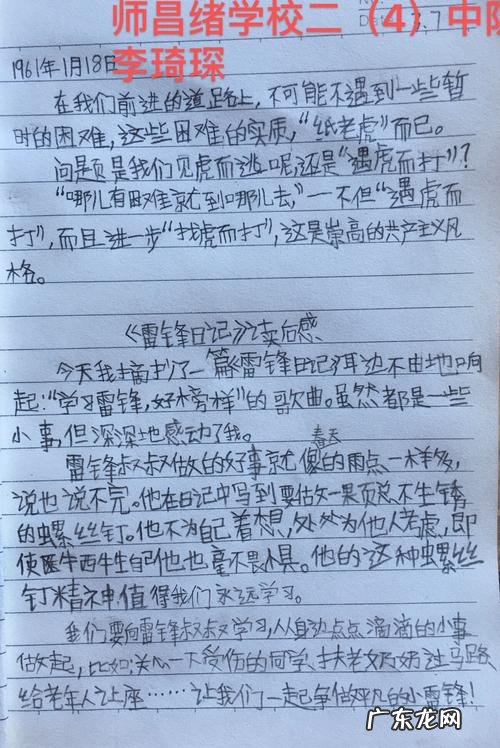 师昌绪学校二（4）中队
李琦琛
3.7
1961年1月18日
在我们前进的道路上，不可能不遇到一些暂
时的困难，这些困难的实质，“纸老虎”而已。
问题是我们见虎而逃呢，还是“遇虎而打”？
“哪儿有困难就到哪儿去，”—不但“遇虎而
打”，而且进一步“找虎而打”，这是崇高的共产主义风
格。
《雷锋日记》读后感
今天我摘抄了一篇《雷锋日记》耳边不由地响
起：“学习雷锋，好榜样”的歌曲。虽然都是一些
小事，但深深地感动了我。
春天
雷锋叔叔做的好事就像的雨点一样多，
说也说不完。他在日记中写到要做一颗总不生锈
的螺丝钉。他不为自己着想，处处为他人考虑，即
使牺牲自己他也毫不畏惧。他的这种螺丝
钉精神值得我们永远学习。
我们要向雷锋叔叔学习，从身边点点滴滴的小事
做起，比如：关心一下受伤的同学、扶老奶奶过马路
给老年人让座……让我们一起争做平凡的小雷锋！
广东龙网